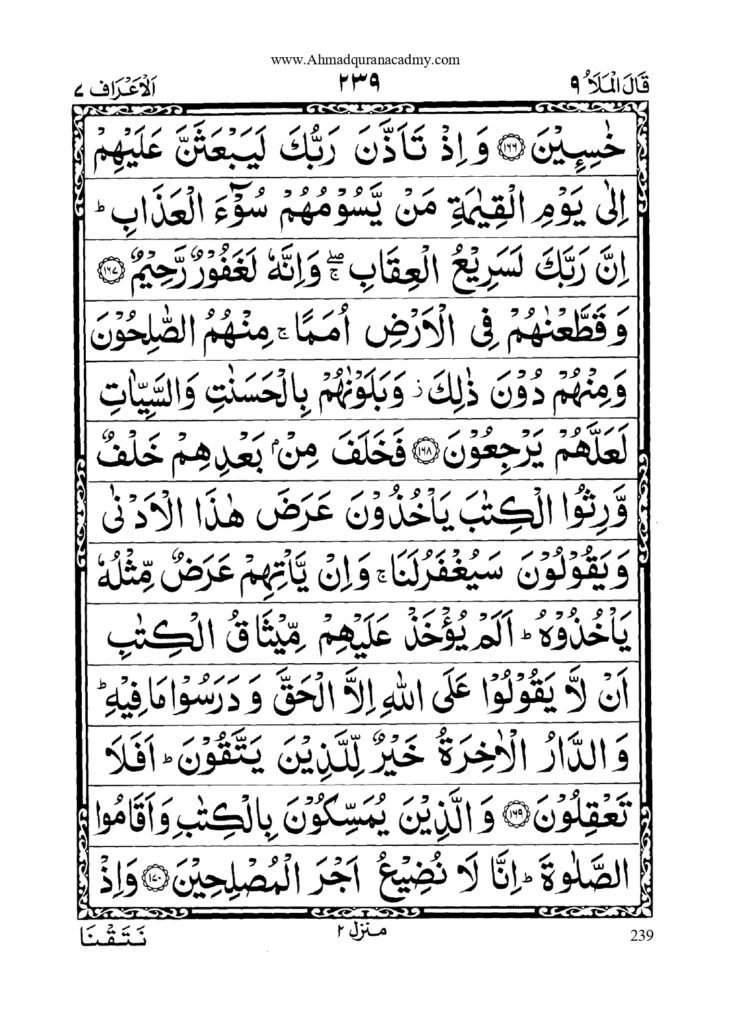 www.Ahmadquranacadmy.com
قَالَ الْمَلَاُ ٩
٢٣٩
اَلْاَعْرَاف ٧
خٰسِـِٕيْنَ ۝١٦٦ وَ اِذْ تَاَذَّنَ رَبُّكَ لَيَبْعَثَنَّ عَلَيْهِمْ
اِلٰى يَوْمِ الْقِيٰمَةِ مَنْ يَّسُوْمُهُمْ سُوْٓءَ الْعَذَابِ ؕ
اِنَّ رَبَّكَ لَسَرِيْعُ الْعِقَابِ ۖۚ وَاِنَّهٗ لَغَفُوْرٌ رَّحِيْمٌ ۝١٦٧
وَ قَطَّعْنٰهُمْ فِى الْاَرْضِ اُمَمًا ۚ مِنْهُمُ الصّٰلِحُوْنَ
وَمِنْهُمْ دُوْنَ ذٰلِكَ ؗ وَبَلَوْنٰهُمْ بِالْحَسَنٰتِ وَالسَّيِّاٰتِ
لَعَلَّهُمْ يَرْجِعُوْنَ ۝١٦٨ فَخَلَفَ مِنْۢ بَعْدِهِمْ خَلْفٌ
وَّرِثُوا الْكِتٰبَ يَاْخُذُوْنَ عَرَضَ هٰذَا الْاَدْنٰى
وَيَقُوْلُوْنَ سَيُغْفَرُلَنَا ۚ وَاِنْ يَّاْتِهِمْ عَرَضٌ مِّثْلُهٗ
يَاْخُذُوْهُ ؕ اَلَمْ يُؤْخَذْ عَلَيْهِمْ مِّيْثَاقُ الْكِتٰبِ
اَنْ لَّا يَقُوْلُوْا عَلَى اللّٰهِ اِلَّا الْحَقَّ وَ دَرَسُوْا مَا فِيْهِ ؕ
وَ الدَّارُ الْاٰخِرَةُ خَيْرٌ لِّلَّذِيْنَ يَتَّقُوْنَ ؕ اَفَلَا
تَعْقِلُوْنَ ۝١٦٩ وَ الَّذِيْنَ يُمَسِّكُوْنَ بِالْكِتٰبِ وَاَقَامُوا
الصَّلٰوةَ ؕ اِنَّا لَا نُضِيْعُ اَجْرَ الْمُصْلِحِيْنَ ۝١٧٠ وَاِذْ
منزل ٢
نَتَقْنَا
239